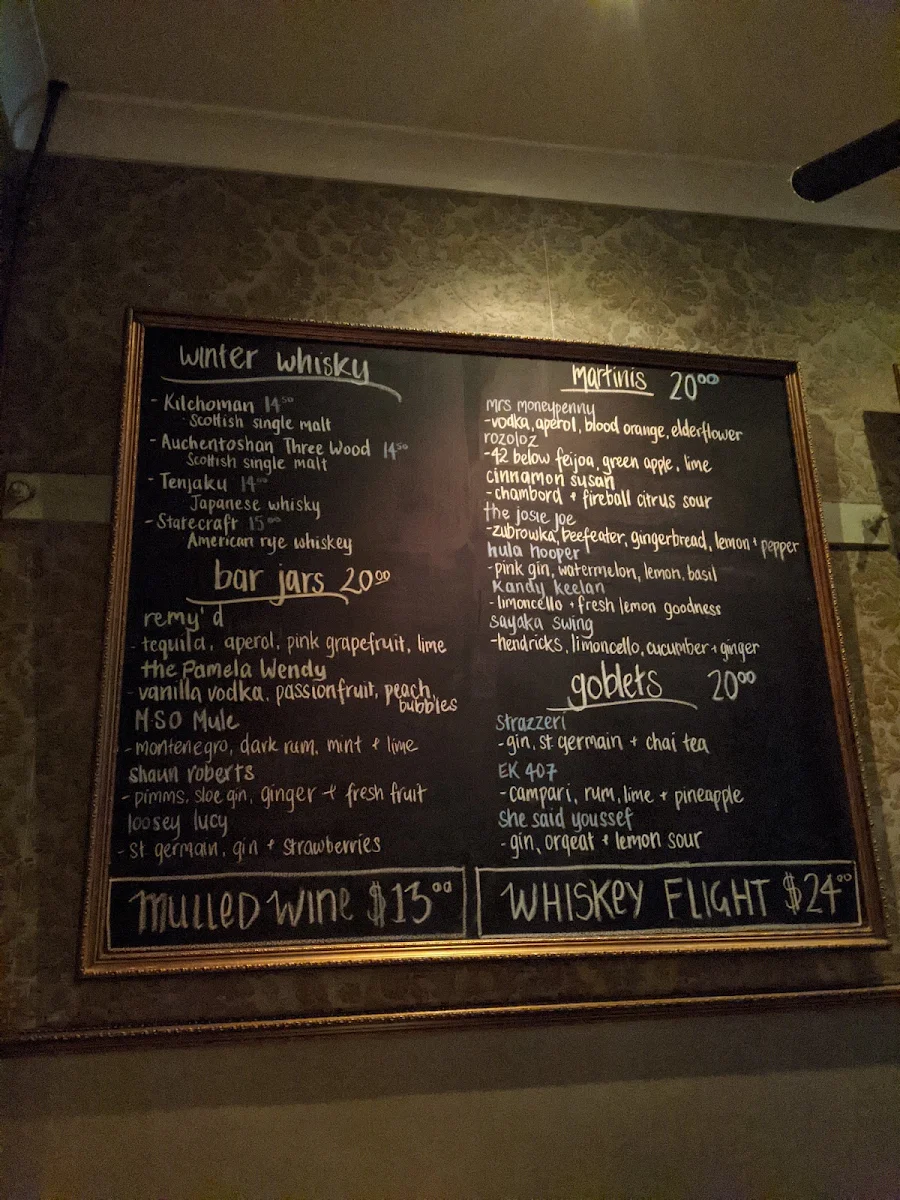 winter whisky
- Kilchoman 14⁵⁰
Scottish single malt
- Auchentoshan Three Wood 14⁵⁰
Scottish single malt
- Tenjaku 14⁰⁰
Japanese whisky
- Statecraft 15⁰⁰
American rye whiskey
bar jars 20⁰⁰
remy'd
- tequila, aperol, pink grapefruit, lime
the Pamela Wendy
- vanilla vodka, passionfruit, peach,
bubbles
M·S·O Mule
- montenegro, dark rum, mint + lime
shaun roberts
- pimms, sloe gin, ginger + fresh fruit
loosey lucy
- st germain, gin + strawberries
MULLED WINE $13⁰⁰
martinis 20⁰⁰
mrs moneypenny
- vodka, aperol, blood orange, elderflower
rozoloz
- 42 below feijoa, green apple, lime
cinnamon susan
- chambord + fireball citrus sour
the josie joe
- zubrowka, beefeater, gingerbread, lemon + pepper
hula hooper
- pink gin, watermelon, lemon, basil
Kandy Keelan
- limoncello + fresh lemon goodness
sayaka swing
- hendricks, limoncello, cucumber + ginger
goblets 20⁰⁰
Strazzeri
- gin, st germain + chai tea
EK 407
- campari, rum, lime + pineapple
She said youssef
- gin, orgeat + lemon sour
WHISKEY FLIGHT $24⁰⁰